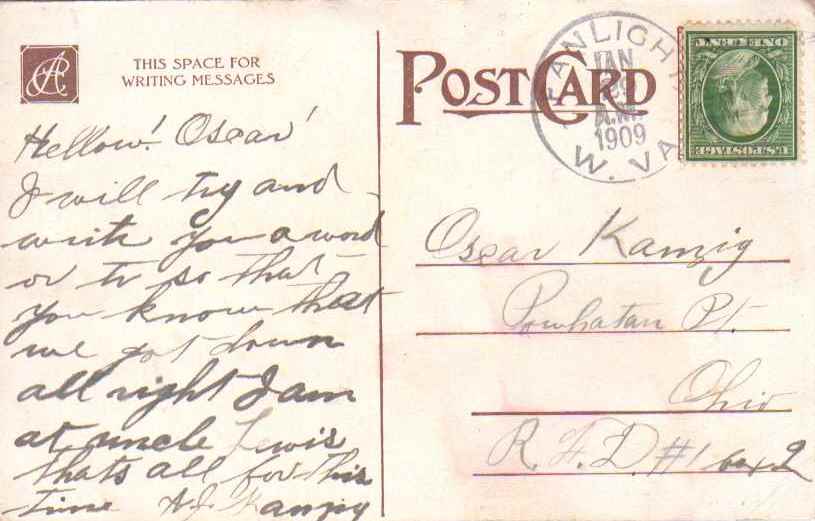 THIS SPACE FOR
WRITING MESSAGES
POST CARD
FANLIGHT
JAN
A.M.
1909
W. VA
U.S. POSTAGE
ONE CENT
Hellow! Oscar!
I will try and
write you a word
or tr so that
you know that
we got down
all right I am
at uncle Lewis
thats all for this
time A J Kanzig
Oscar Kanzig
Powhatan Pt.
Ohio
R. F. D. #1 box 2